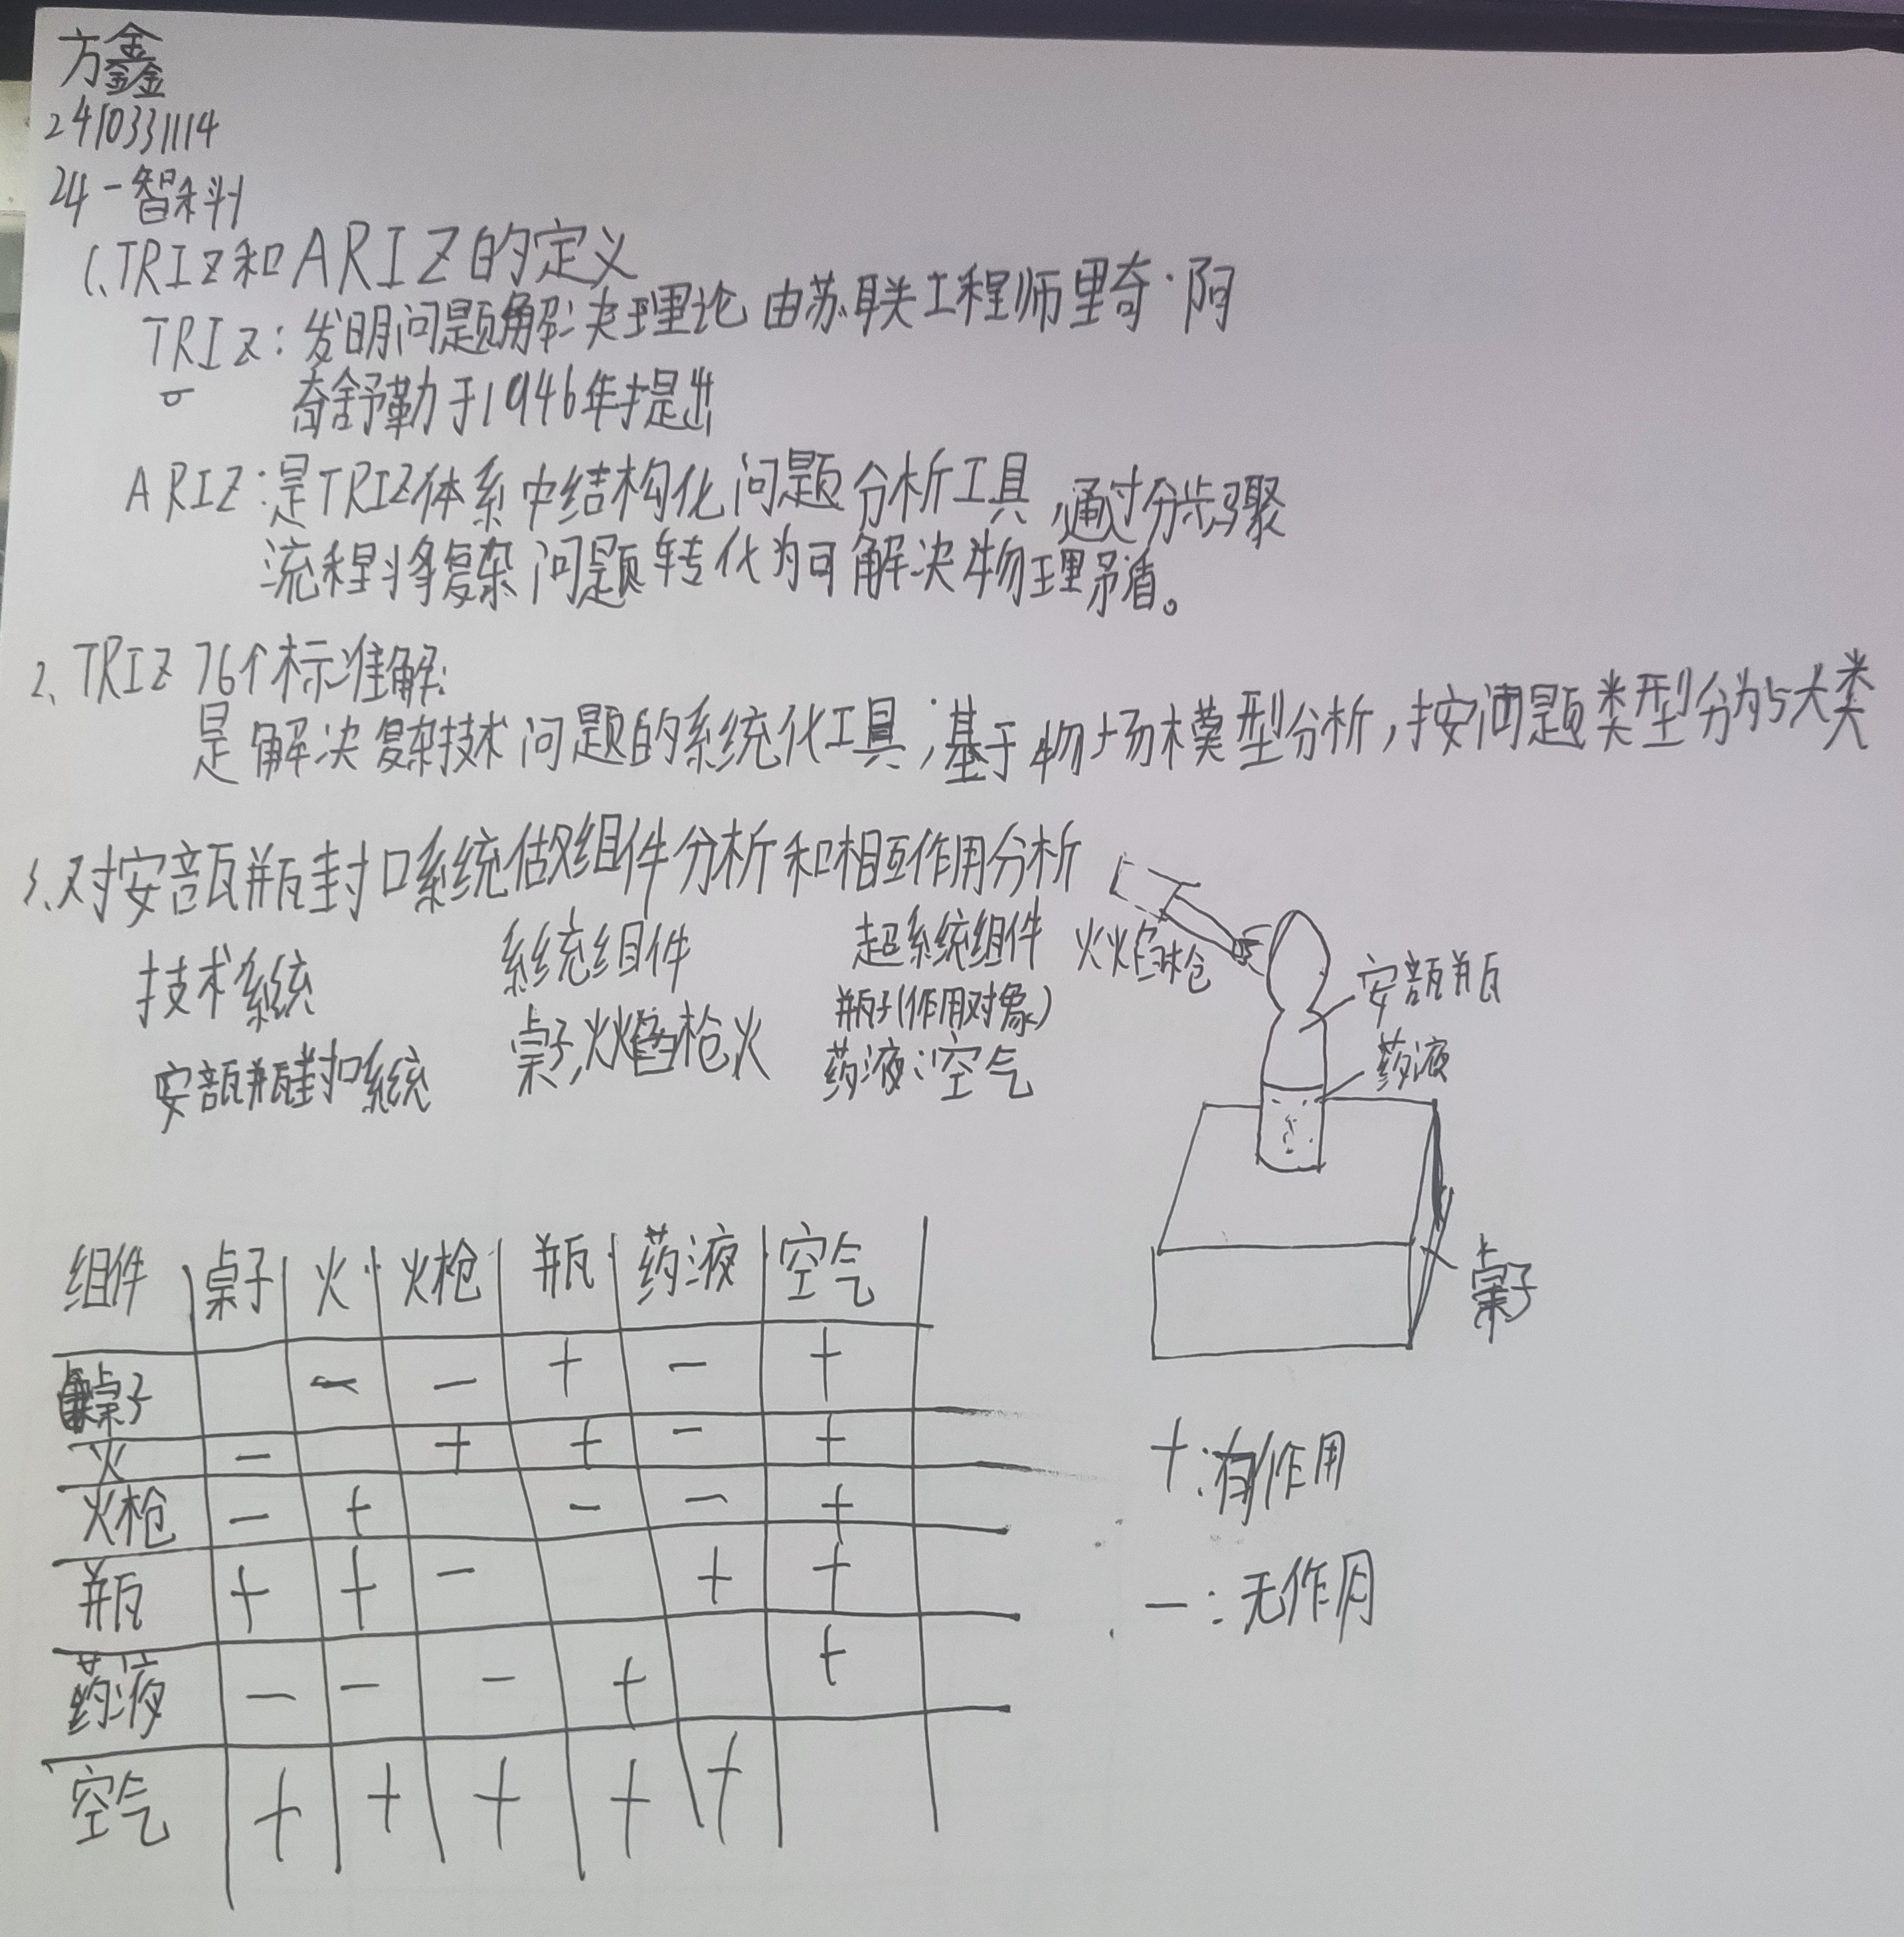 方鑫
2410331114
24-智科1
1.TRIZ和ARIZ的定义
TRIZ:发明问题解决理论 由苏联工程师里奇·阿
奇舒勒于1946年提出
ARIZ:是TRIZ体系中结构化问题分析工具,通过分步骤
流程将复杂问题转化为可解决物理矛盾。
2、TRIZ 76个标准解:
是解决复杂技术问题的系统化工具;基于物场模型分析,按问题类型分为5大类
3、对安瓿瓶封口系统做组件分析和相互作用分析
技术系统 系统组件 超系统组件
安瓿瓶封口系统 桌子,火焰枪火 瓶子(作用对象)
药液;空气
火焰枪
安瓿瓶
药液
桌子
组件 桌子 火 火枪 瓶 药液 空气
桌子 - - + - +
火 - + + - +
火枪 - + - - +
瓶 + + - + +
药液 - - - + +
空气 + + + + +
+:有作用
-:无作用